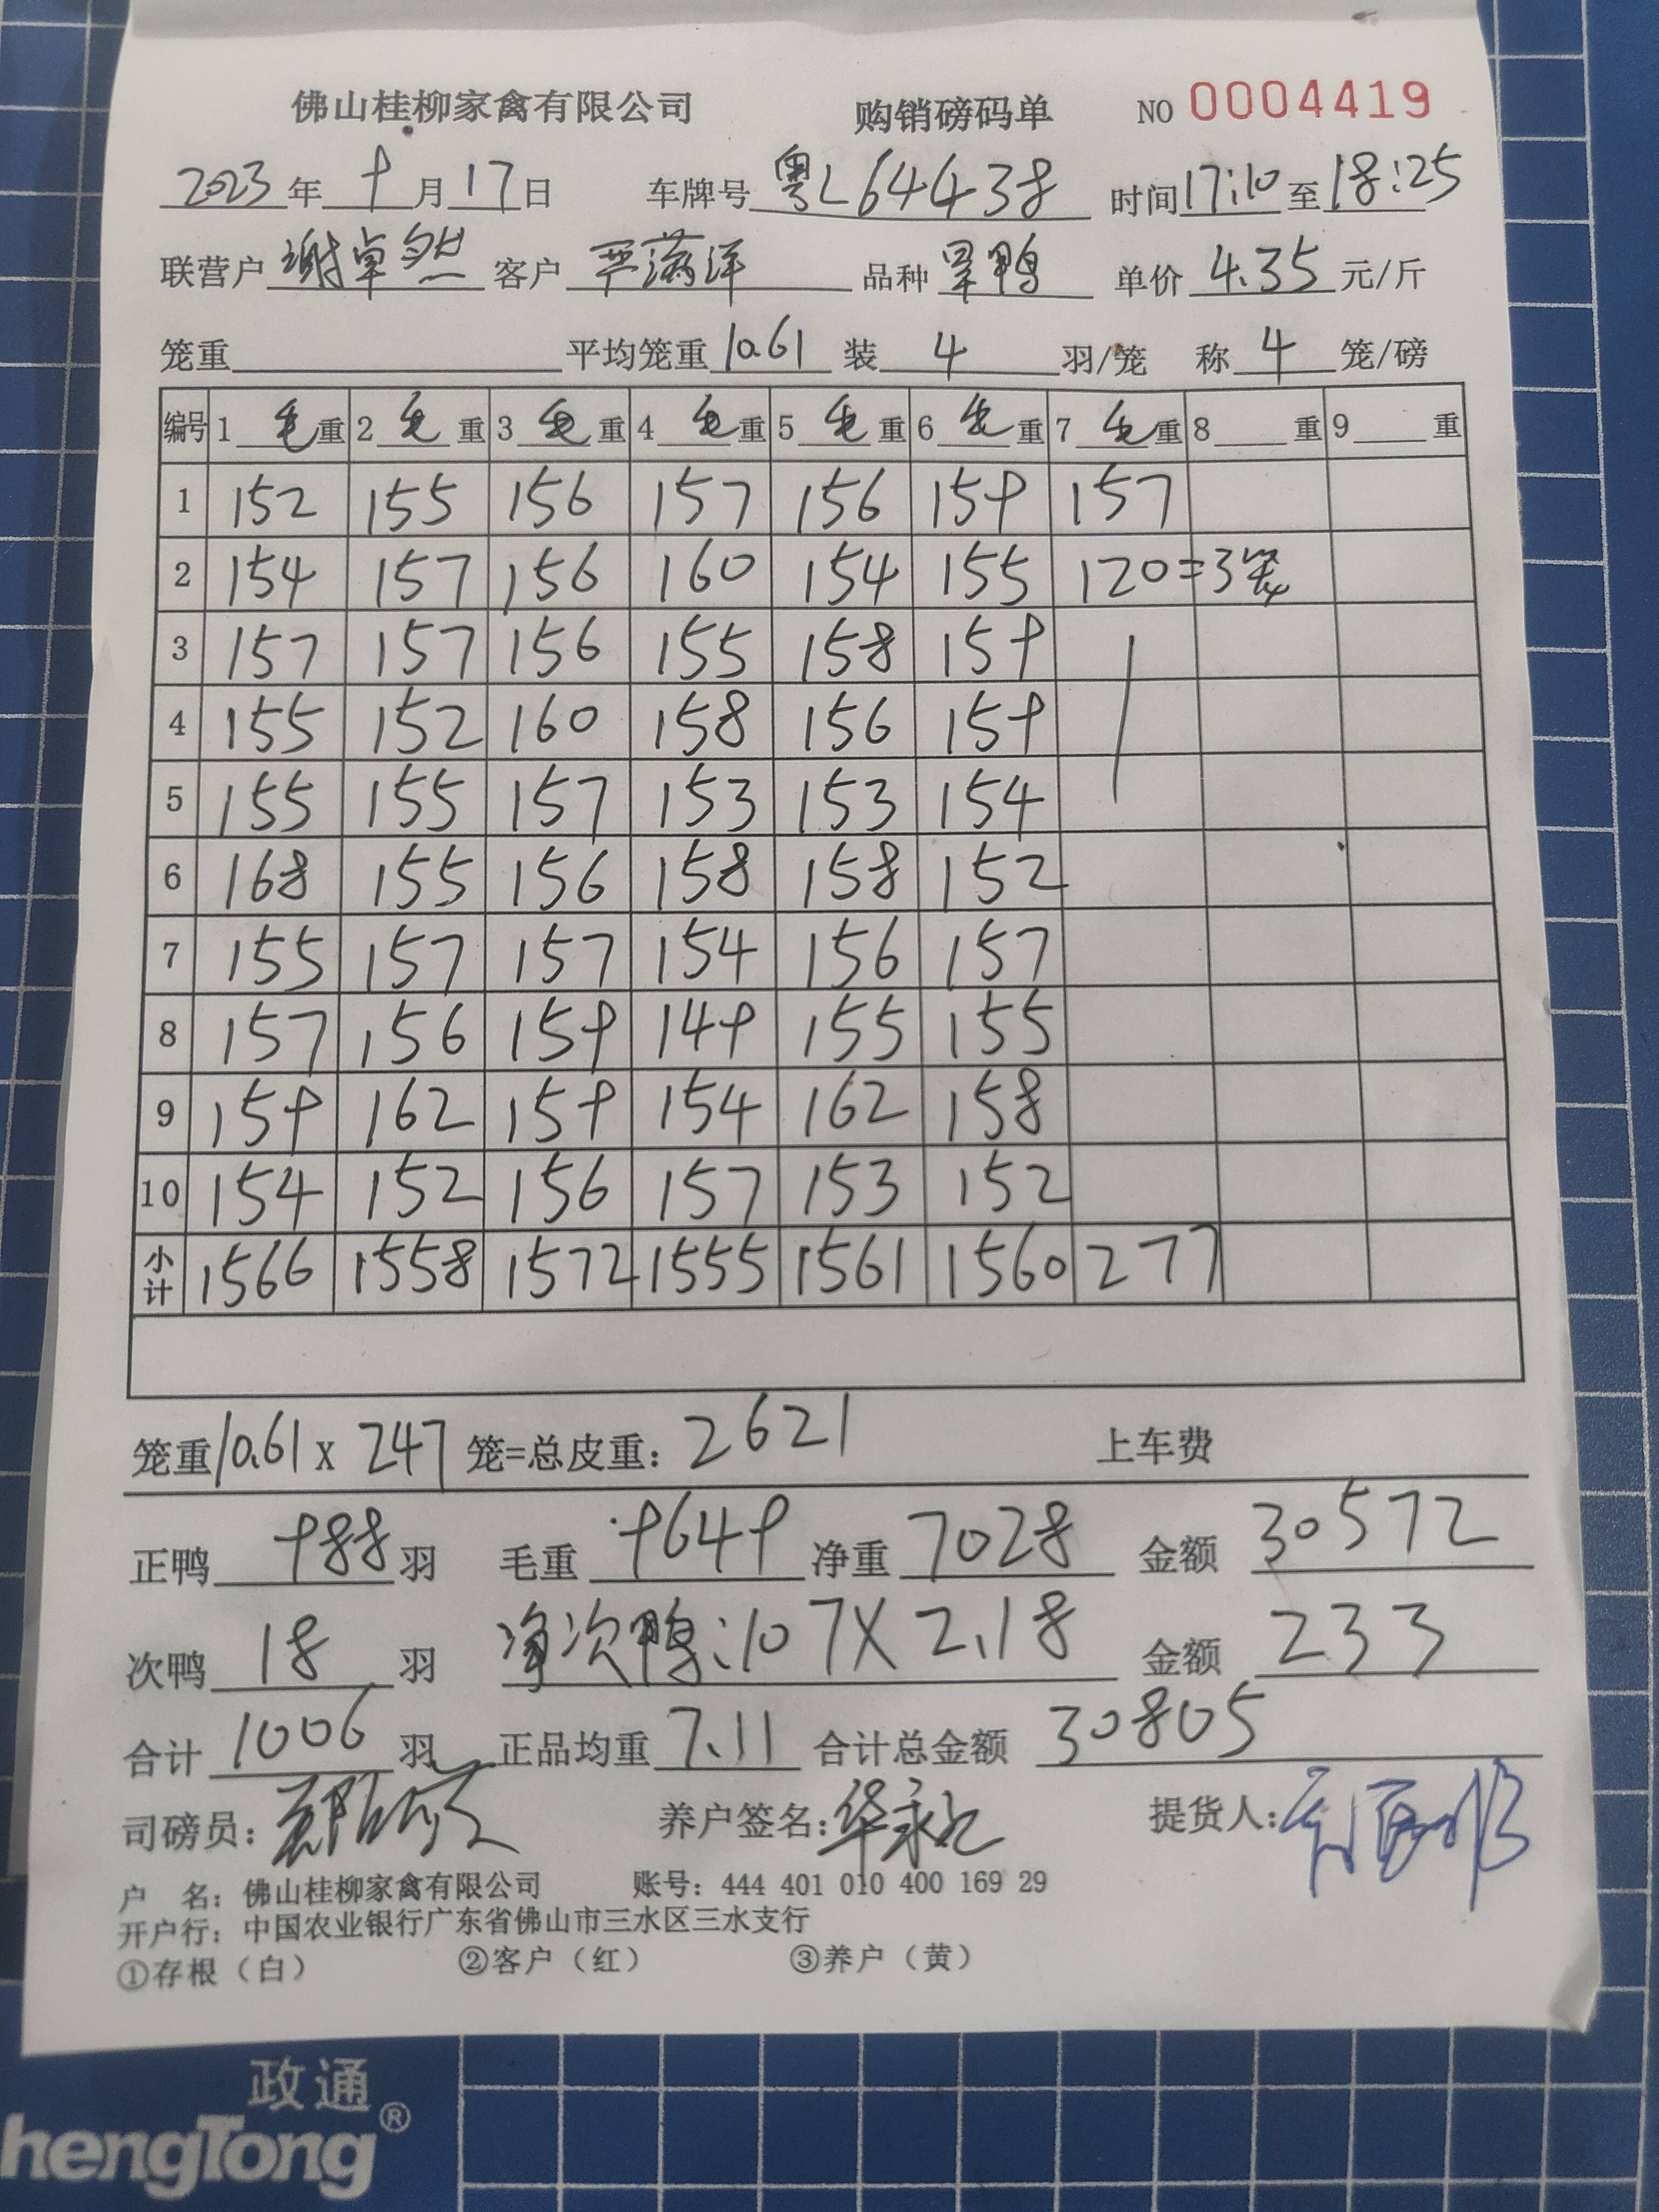 佛山桂柳家禽有限公司 购销磅码单 NO 0004419
2023年 9月17日 车牌号 粤L64438 时间17:10至18:25
联营户 谢卓然 客户 严满洋 品种 旱鸭 单价 4.35 元/斤
笼重 平均笼重 10.61 装 4 羽/笼 称 4 笼/磅
编号 1 毛重 2 毛重 3 毛重 4 毛重 5 毛重 6 毛重 7 毛重 8 重 9 重
1 152 155 156 157 156 159 157
2 154 157 156 160 154 155 120=3笼
3 157 157 156 155 158 159
4 155 152 160 158 156 159
5 155 155 157 153 153 154
6 168 155 156 158 158 152
7 155 157 157 154 156 157
8 157 156 159 149 155 155
9 159 162 159 154 162 158
10 154 152 156 157 153 152
小计 1566 1558 1572 1555 1561 1560 277
笼重10.61 x 247 笼=总皮重: 2621 上车费
正鸭 988 羽 毛重 9649 净重 7028 金额 30572
次鸭 18 羽 净次鸭:107X2.18 金额 233
合计 1006 羽 正品均重 7.11 合计总金额 30805
司磅员: 养户签名: 提货人:
户 名: 佛山桂柳家禽有限公司 账号: 444 401 010 400 169 29
开户行: 中国农业银行广东省佛山市三水区三水支行
①存根（白） ②客户（红） ③养户（黄）
政通
hengTong®